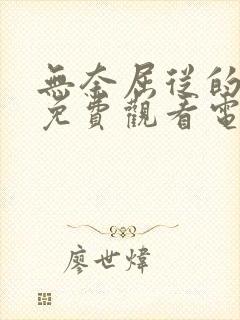 無奈屈從的
免費觀看電
廖世煒